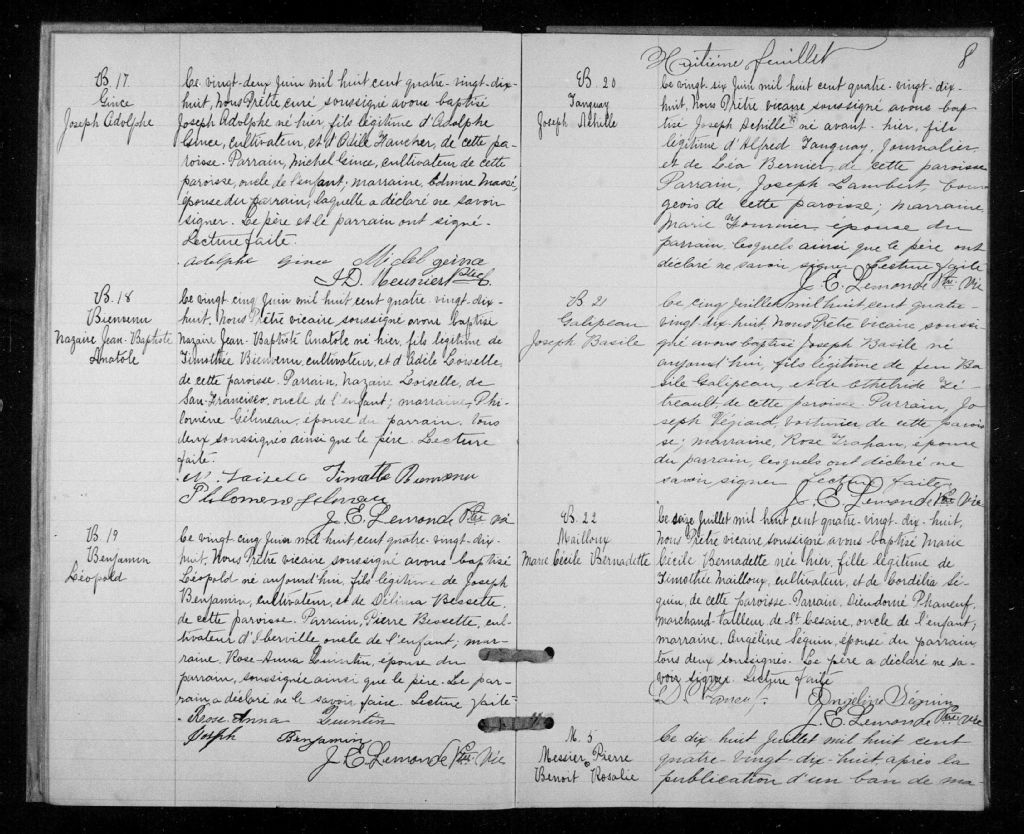 B. 17
Gince
Joseph Adolphe
Ce vingt-deux Juin mil huit cent quatre-vingt-dix-
huit, Nous Prêtre curé soussigné avons baptisé
Joseph Adolphe né hier, fils légitime d'Adolphe
Gince, cultivateur, et d'Odile Faucher, de cette pa-
roisse. Parrain, Michel Gince, cultivateur de cette
paroisse, oncle de l'enfant; marraine, Edmire Massé,
épouse du parrain, laquelle a déclaré ne savoir
signer. Le père et le parrain ont signé.
Lecture faite.
Adolphe Gince Michel geina
J. D. Meunier Ptre C.
B. 18
Bienvenu
Nazaire Jean-Baptiste
Anatole
Ce vingt cinq Juin mil huit cent quatre-vingt-dix-
huit, Nous Prêtre vicaire soussigné avons baptisé
Nazaire Jean-Baptiste Anatole né hier, fils légitime de
Timothée Bienvenu, cultivateur, et d'Adèle Loiselle
de cette paroisse. Parrain, Nazaire Loiselle, de
San-Francisco, oncle de l'enfant; marraine, Phi-
lomène Gélineau, épouse du parrain, tous
deux soussignés ainsi que le père. Lecture
faite.
N. Loisela Timothe Bienvenu
Philomene Gelineau
J. E. Lemonde Ptre Vic
B. 19
Benjamin
Léopold
Ce vingt cinq Juin mil huit cent quatre-vingt-dix-
huit, Nous Prêtre vicaire soussigné avons baptisé
Léopold né aujourd'hui, fils légitime de Joseph
Benjamin, cultivateur, et de Délima Bessette,
de cette paroisse. Parrain, Pierre Bessette, cul-
tivateur d'Iberville, oncle de l'enfant; mar-
raine, Rose-Anna Quintin, épouse du
parrain, soussignée ainsi que le père. Le par-
rain a déclaré ne le savoir faire. Lecture faite.
Rose Anna Quintin
Joseph Benjamin
J. E. Lemonde Ptre Vic
Huitième feuillet 8
B. 20
Tanguay
Joseph Achille
Ce vingt-six Juin mil huit cent quatre-vingt-dix-
huit, Nous Prêtre vicaire, soussigné avons bap-
tisé Joseph Achille né avant-hier, fils
légitime d'Alfred Tanguay, Journalier
et de Léa Bernier, de cette paroisse
Parrain, Joseph Lambert, bour
geois de cette paroisse; marraine
Marie Fournier, épouse du
parrain, lesquels ainsi que le père ont
déclaré ne savoir signer Lecture faite
J. E. Lemonde Ptre Vic
B. 21
Galipeau
Joseph Basile
Ce cinq Juillet mil huit cent quatre-
vingt-dix-huit, Nous Prêtre vicaire, soussi-
gné avons baptisé Joseph Basile né
aujourd'hui, fils légitime de feu Ba
sile Galipeau, et de Etheltride Té-
treault, de cette paroisse Parrain, Jo
seph Végiard, voiturier de cette parois
se; marraine, Rose Trahan, épouse
du parrain, lesquels ont déclaré ne
savoir signer Lecture faite
J. E. Lemonde Ptre Vic
B. 22
Mailloux
Marie Cécile Bernadette
Ce seize Juillet mil huit cent quatre-vingt-dix-huit,
Nous Prêtre vicaire soussigné avons baptisé Marie
Cécile Bernadette née hier, fille légitime de
Timothée Mailloux, cultivateur, et de Cordélia Sé-
guin, de cette paroisse. Parrain, Dieudonné Phaneuf,
marchand-tailleur de St Césaire, oncle de l'enfant;
marraine, Angéline Séguin, épouse du parrain
tous deux soussignés. Le père a déclaré ne sa-
voir signer. Lecture faite
Angéline Séguin
J. E. Lemonde Ptre Vic
M. 5
Messier Pierre
Benoit Rosalie
Ce dix-huit Juillet mil huit cent
quatre-vingt-dix-huit, après la
publication d'un ban de ma-